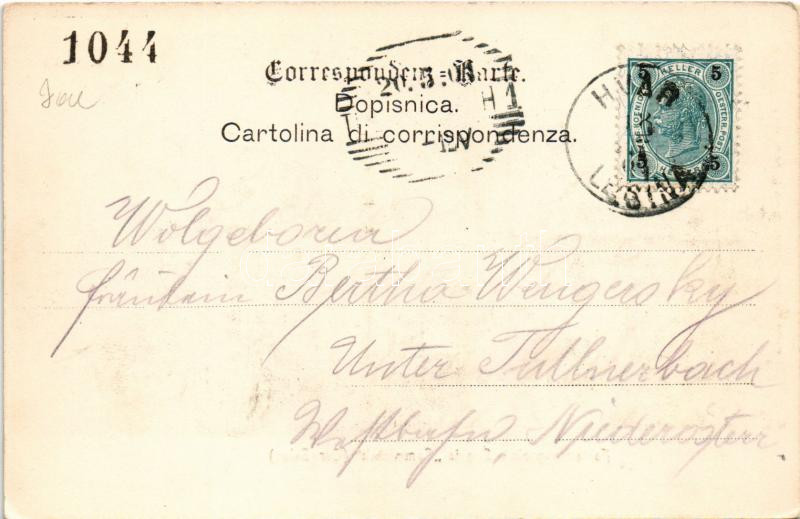 1044
Correspondenz=Karte.
Dopisnica.
Cartolina di corrispondenza.
20.5.
H 1
LESINA
5 HELLER 5
5 5
Wolgeboren
Fräulein Bertha Wengersky
Unter Tullnerbach
Westbahn Niederösterr